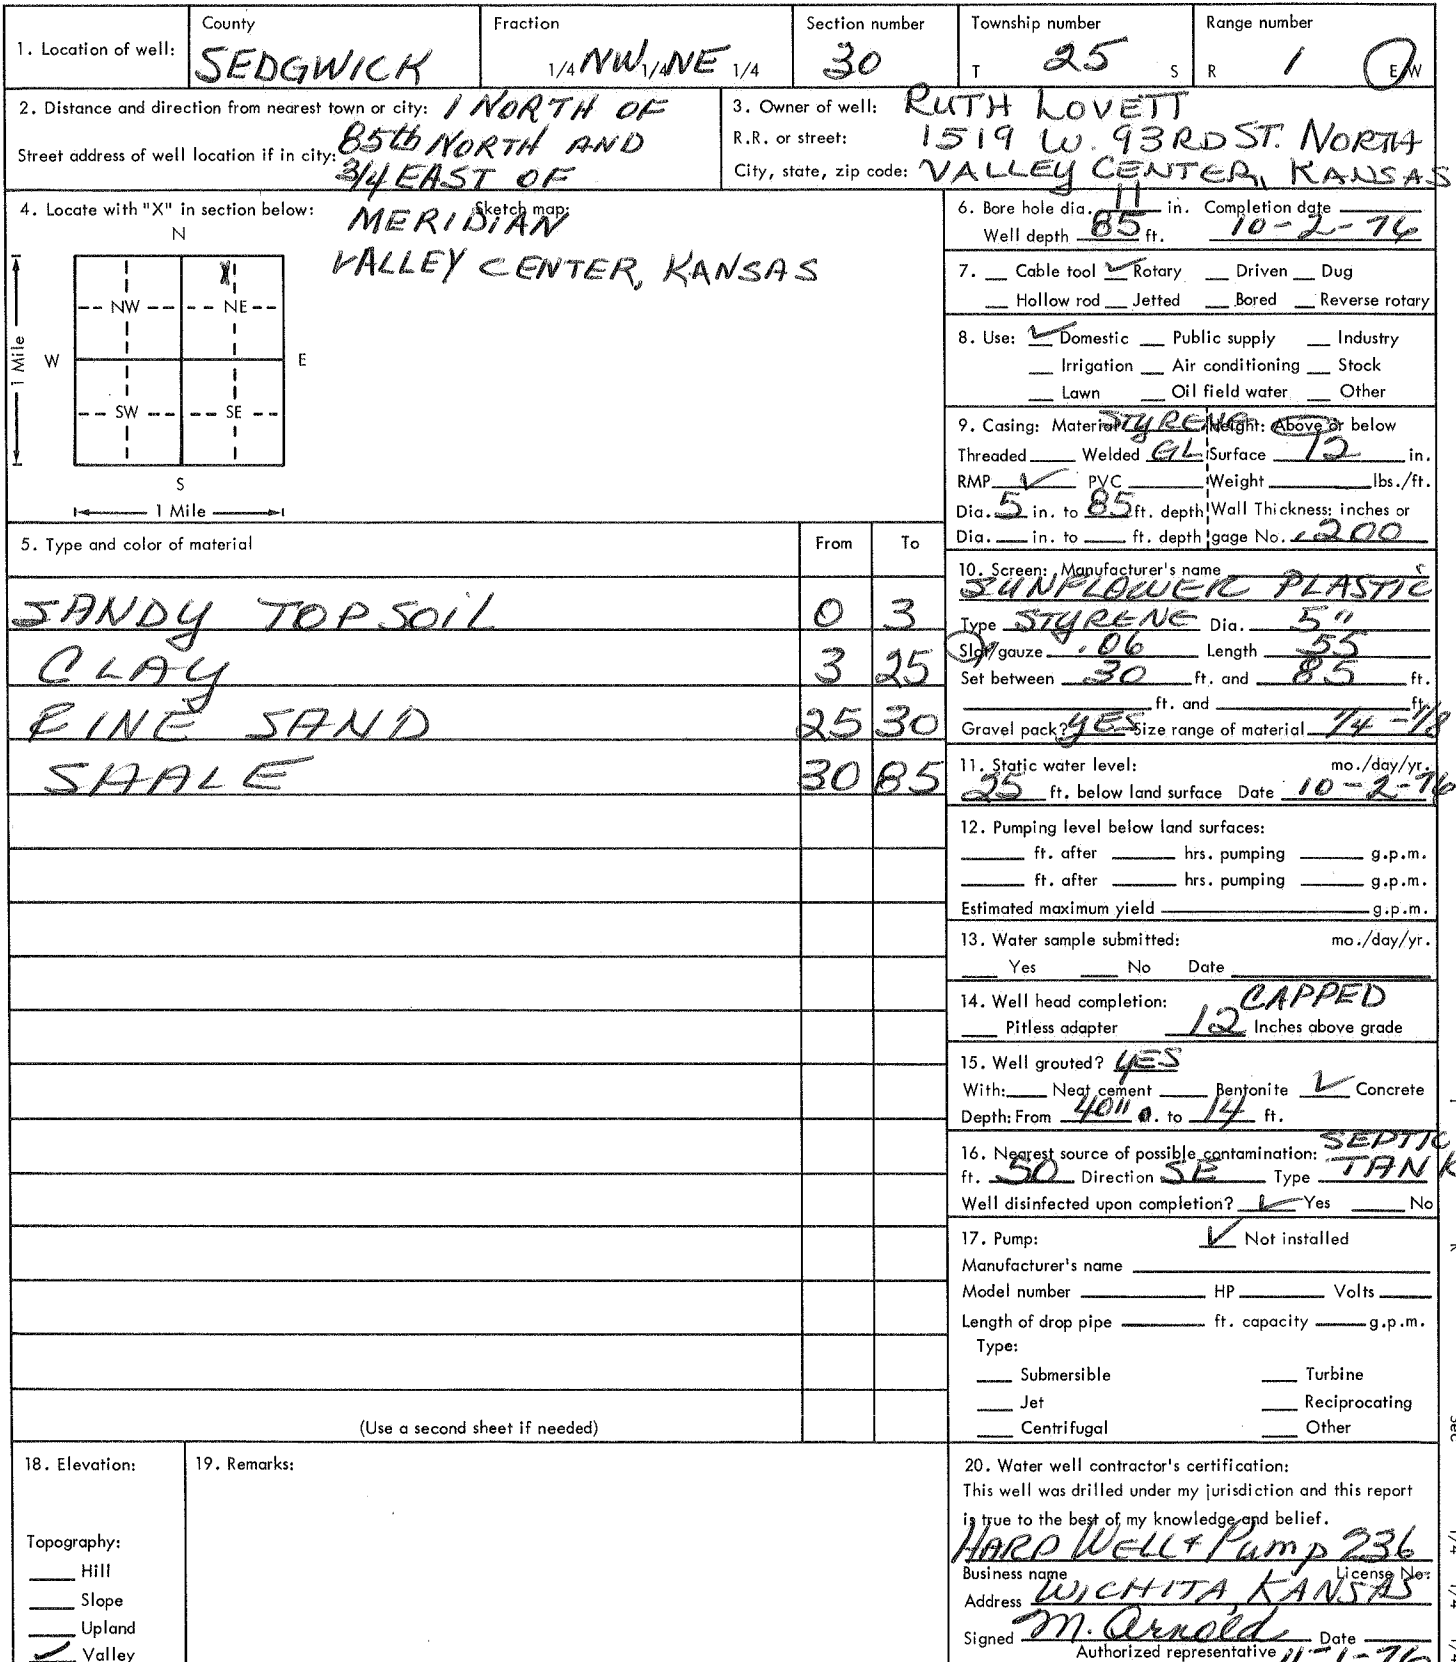 1. Location of well: County SEDGWICK Fraction 1/4 NW 1/4 NE 1/4 Section number 30 Township number T 25 S Range number R 1 E/W
2. Distance and direction from nearest town or city: 1 NORTH OF
Street address of well location if in city: 85th NORTH AND
3/4 EAST OF
MERIDIAN
VALLEY CENTER, KANSAS
3. Owner of well: RUTH LOVETT
R.R. or street: 1519 W. 93RD ST. NORTH
City, state, zip code: VALLEY CENTER, KANSAS
4. Locate with "X" in section below: Sketch map:
N
X
NW NE
W E
SW SE
S
1 Mile
1 Mile
5. Type and color of material From To
SANDY TOPSOIL 0 3
CLAY 3 25
FINE SAND 25 30
SHALE 30 85
(Use a second sheet if needed)
6. Bore hole dia. 11 in. Completion date
Well depth 85 ft. 10-2-76
7. Cable tool ✓ Rotary Driven Dug
Hollow rod Jetted Bored Reverse rotary
8. Use: ✓ Domestic Public supply Industry
Irrigation Air conditioning Stock
Lawn Oil field water Other
9. Casing: Material STYRENE Height: Above or below
Threaded Welded GL Surface 12 in.
RMP ✓ PVC Weight lbs./ft.
Dia. 5 in. to 85 ft. depth Wall Thickness: inches or
Dia. in. to ft. depth gage No. .200
10. Screen: Manufacturer's name
SUNFLOWER PLASTIC
Type STYRENE Dia. 5"
Slot/gauze .06 Length 55
Set between 30 ft. and 85 ft.
ft. and ft.
Gravel pack? YES Size range of material 1/4 - 1/8
11. Static water level: mo./day/yr.
25 ft. below land surface Date 10-2-76
12. Pumping level below land surfaces:
ft. after hrs. pumping g.p.m.
ft. after hrs. pumping g.p.m.
Estimated maximum yield g.p.m.
13. Water sample submitted: mo./day/yr.
Yes No Date
14. Well head completion: CAPPED
Pitless adapter 12 Inches above grade
15. Well grouted? YES
With: Neat cement Bentonite ✓ Concrete
Depth: From 40" to 14 ft.
16. Nearest source of possible contamination: SEPTIC
ft. 50 Direction SE Type TANK
Well disinfected upon completion? ✓ Yes No
17. Pump: ✓ Not installed
Manufacturer's name
Model number HP Volts
Length of drop pipe ft. capacity g.p.m.
Type:
Submersible Turbine
Jet Reciprocating
Centrifugal Other
18. Elevation:
Topography:
Hill
Slope
Upland
✓ Valley
19. Remarks:
20. Water well contractor's certification:
This well was drilled under my jurisdiction and this report
is true to the best of my knowledge and belief.
HARP WELL & Pump 236
Business name License No.
Address WICHITA, KANSAS
Signed M. Arnold Date
Authorized representative 11-1-76